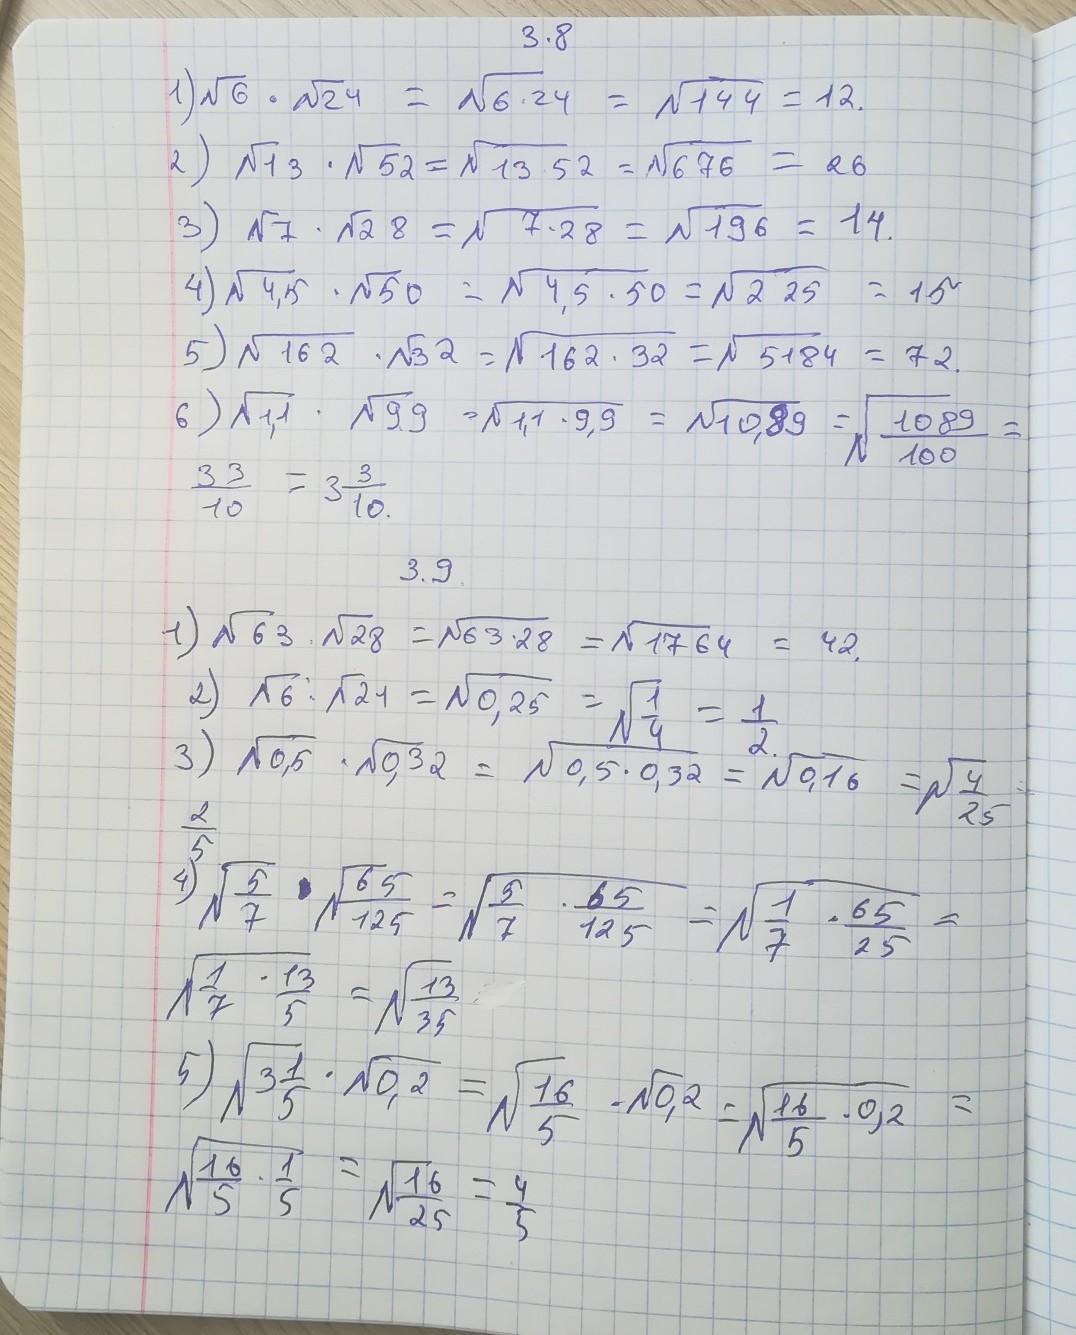 3.8
1) √6 · √24 = √6·24 = √144 = 12.
2) √13 · √52 = √13·52 = √676 = 26
3) √7 · √28 = √7·28 = √196 = 14.
4) √4,5 · √50 = √4,5·50 = √225 = 15
5) √162 · √32 = √162·32 = √5184 = 72.
6) √1,1 · √9,9 = √1,1·9,9 = √10,89 = √1089/100 =
33/10 = 3 3/10.
3.9.
1) √63 · √28 = √63·28 = √1764 = 42.
2) √6 : √24 = √0,25 = √1/4 = 1/2.
3) √0,5 · √0,32 = √0,5·0,32 = √0,16 = √4/25 =
2/5
4) √5/7 · √65/125 = √5/7 · 65/125 = √1/7 · 65/25 =
√1/7 · 13/5 = √13/35
5) √3 1/5 · √0,2 = √16/5 · √0,2 = √16/5 · 0,2 =
√16/5 · 1/5 = √16/25 = 4/5